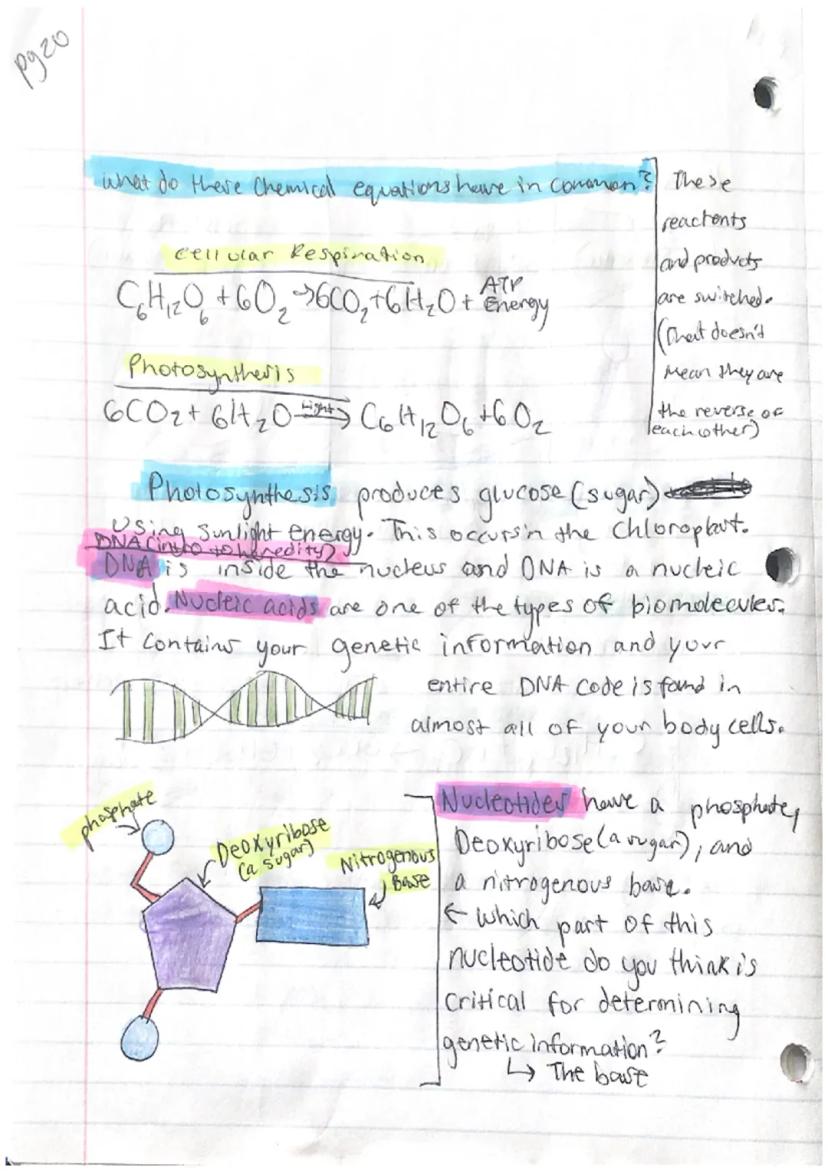 pg20
What do these Chemical equations have in common?
These
reactents
and products
are switched.
(That doesn't
mean they are
the reverse of
each other)
Cellular Respiration
C₆H₁₂O₆ + 6O₂ → 6CO₂ + 6H₂O + ATP Energy
Photosynthesis
6CO₂ + 6H₂O —Light→ C₆H₁₂O₆ + 6O₂
Photosynthesis produces glucose (sugar)
Using sunlight energy. This occurs in the Chloroplast.
DNA (intro to heredity)
DNA is inside the nucleus and DNA is a nucleic
acid. Nucleic acids are one of the types of biomolecules.
It contains your genetic information and your
entire DNA code is found in
almost all of your body cells.
phosphate
Deoxyribose
(a sugar)
Nitrogenous
Base
Nucleotides have a phosphate,
Deoxyribose (a sugar), and
a nitrogenous base.
← which part of this
nucleotide do you think is
critical for determining
genetic information?
↳ The base